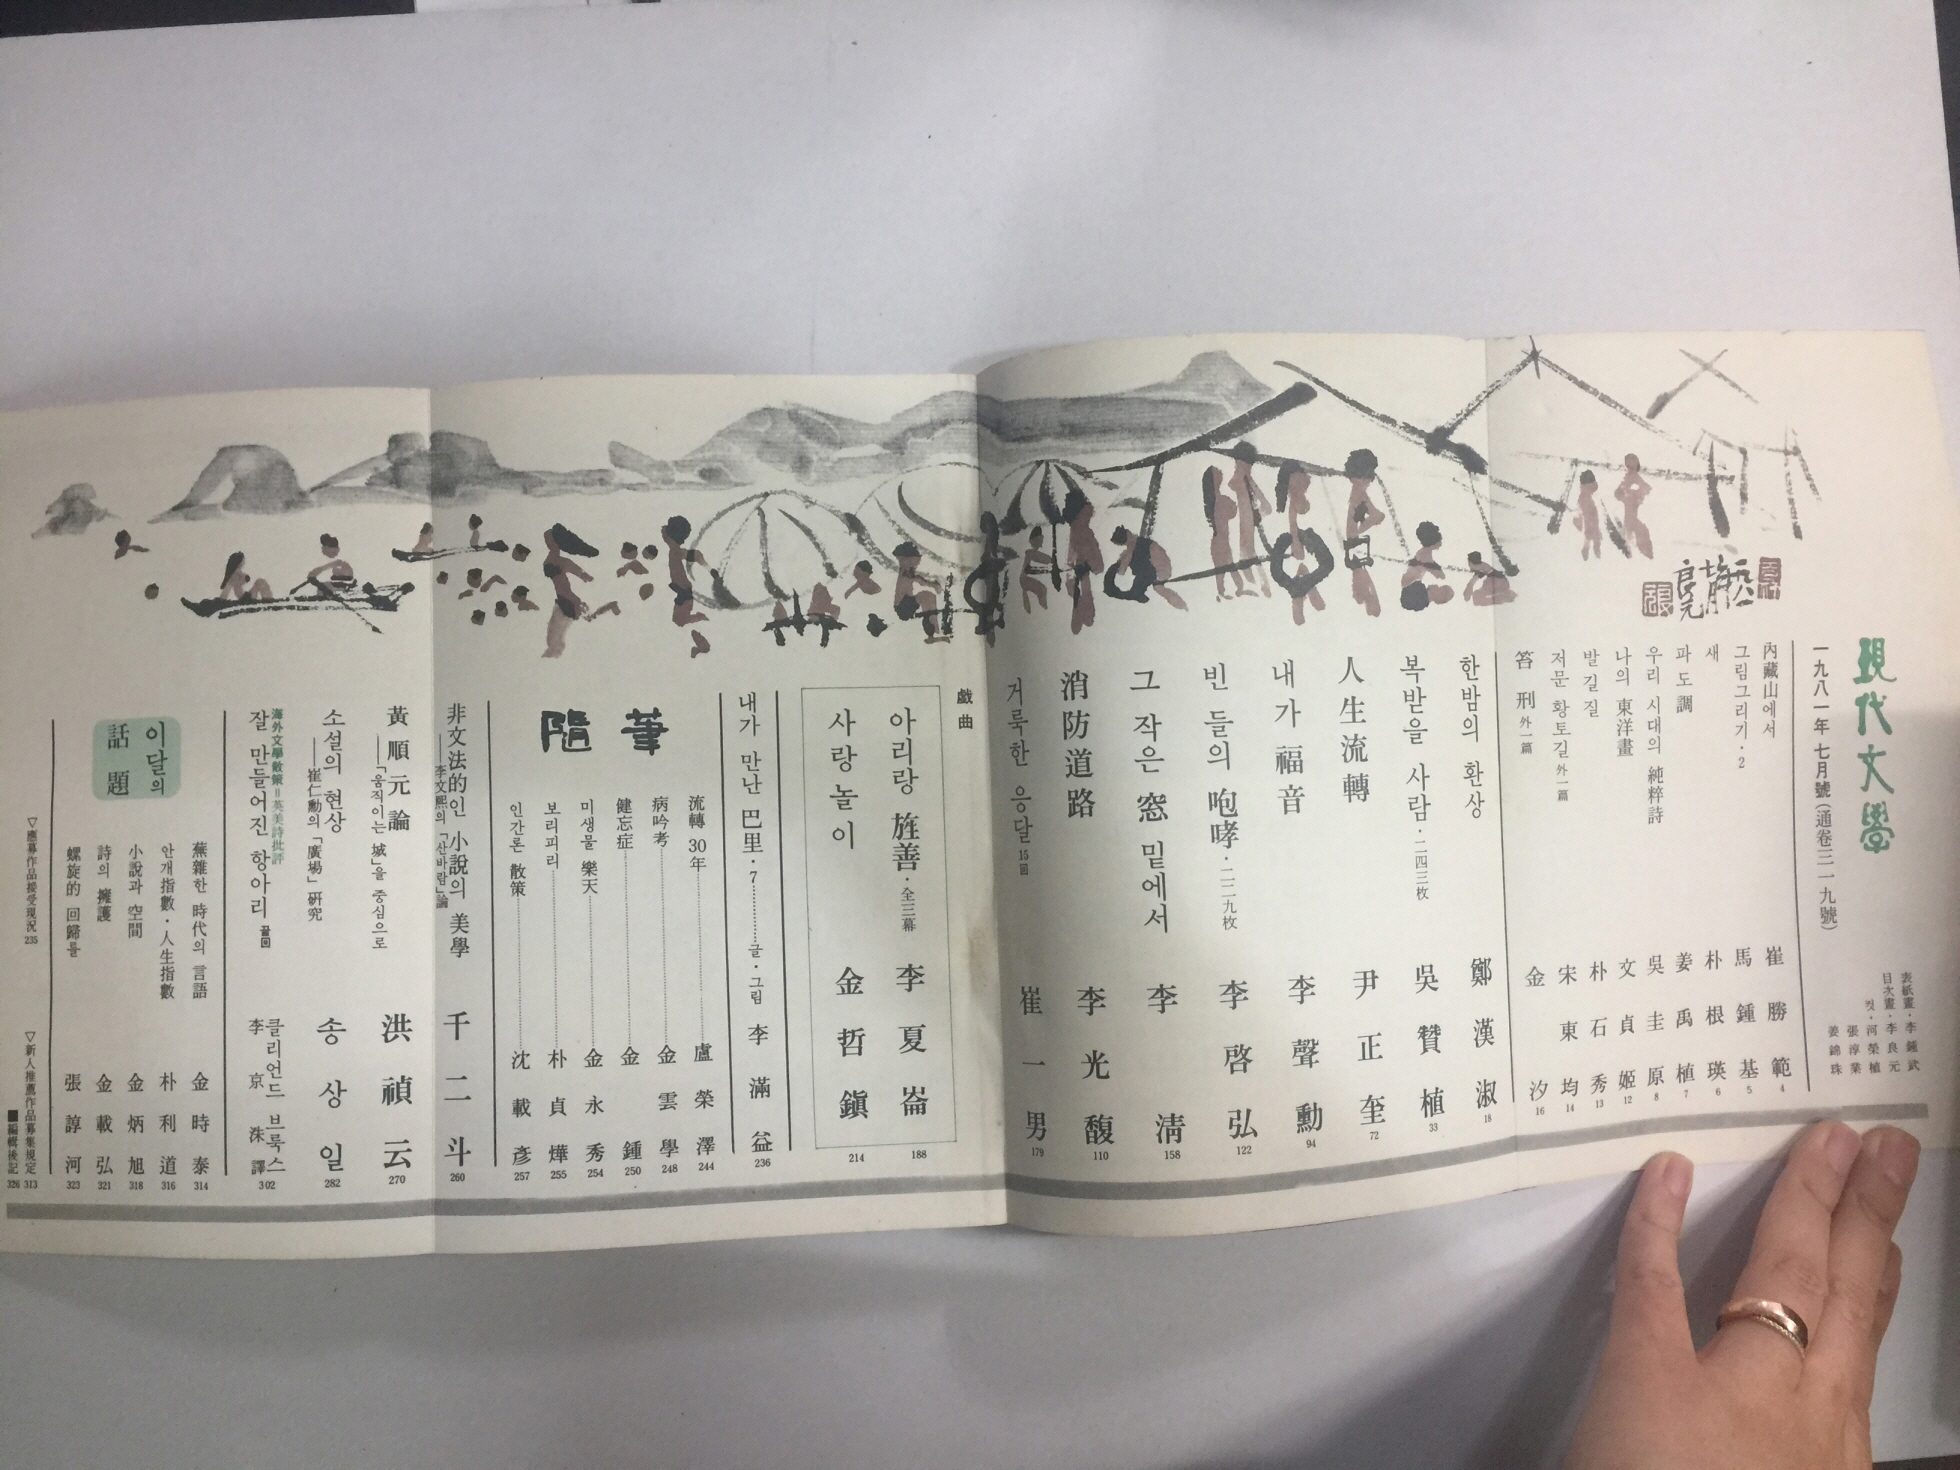 現代文學
一九八一年 七月號(通卷三一九號)
表紙畫·李鍾武
目次畫·李良元
컷·河榮植
張淳業
姜錦珠
內藏山에서 崔勝範 4
그림그리기·2 馬鍾基 5
새 朴根瑛 6
파도調 姜禹植 7
우리 시대의 純粹詩 吳圭原 8
나의 東洋畫 文貞姬 12
발길질 朴石秀 13
저문 황토길 外一篇 宋東均 14
笞刑 外一篇 金汐 16
한밤의 환상 鄭漢淑 18
복받을 사람·二四三枚 吳贊植 33
人生流轉 尹正奎 72
내가 福音 李聲勳 94
빈 들의 咆哮·二二九枚 李啓弘 122
그 작은 窓 밑에서 李淸 158
消防道路 李光馥 110
거룩한 응달 15回 崔一男 179
戱曲
아리랑 旌善·全三幕 李夏崙 188
사랑놀이 金哲鎭 214
내가 만난 巴里·7 글·그림 李滿益 236
隨筆
流轉 30年 盧榮澤 244
病吟考 金雲學 248
健忘症 金鍾 250
미생물 樂天 金永秀 254
보리피리 朴貞燁 255
인간론 散策 沈載彥 257
非文法的인 小說의 美學 千二斗 260
──李文熙의 「산바람」論
黃順元論 洪禎云 270
──「움직이는 城」을 중심으로
소설의 현상 송상일 282
──崔仁勳의 「廣場」 硏究
海外文學散策=英美詩批評
잘 만들어진 항아리 끝回 클리언드 브룩스
李京洙 譯 302
이달의
話題
蕪雜한 時代의 言語 金時泰 314
안개指數·人生指數 朴利道 316
小說과 空間 金炳旭 318
詩의 擁護 金載弘 321
螺旋的 回歸를 張諄河 323
▽應募作品接受現況 235
▽新人推薦作品募集規定 313
■編輯後記 326